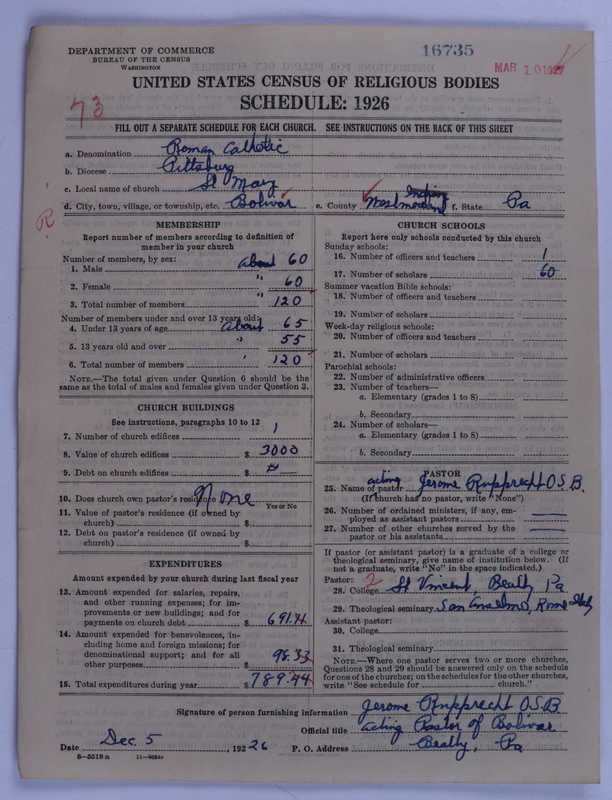 DEPARTMENT OF COMMERCE
BUREAU OF THE CENSUS
WASHINGTON
16735
MAR 10 1927
UNITED STATES CENSUS OF RELIGIOUS BODIES
SCHEDULE: 1926
73
FILL OUT A SEPARATE SCHEDULE FOR EACH CHURCH. SEE INSTRUCTIONS ON THE BACK OF THIS SHEET
a. Denomination Roman Catholic
b. Diocese Pittsburg
c. Local name of church St Mary
d. City, town, village, or township, etc. Bolivar e. County Westmoreland Indiana f. State Pa
R
MEMBERSHIP
Report number of members according to definition of
member in your church
Number of members, by sex:
1. Male about 60
2. Female " 60
3. Total number of members " 120
Number of members under and over 13 years old:
4. Under 13 years of age about 65
5. 13 years old and over " 55
6. Total number of members " 120
NOTE.—The total given under Question 6 should be the
same as the total of males and females given under Question 3.
CHURCH BUILDINGS
See instructions, paragraphs 10 to 12
7. Number of church edifices 1
8. Value of church edifices $ 3000
9. Debt on church edifices $
10. Does church own pastor's residence None
Yes or No
11. Value of pastor's residence (if owned by
church) $
12. Debt on pastor's residence (if owned by
church) $
EXPENDITURES
Amount expended by your church during last fiscal year
13. Amount expended for salaries, repairs,
and other running expenses; for im-
provements or new buildings; and for
payments on church debt $ 691.11
14. Amount expended for benevolences, in-
cluding home and foreign missions; for
denominational support; and for all
other purposes $ 98.33
15. Total expenditures during year $ 789.44
CHURCH SCHOOLS
Report here only schools conducted by this church
Sunday schools:
16. Number of officers and teachers 1
17. Number of scholars 60
Summer vacation Bible schools:
18. Number of officers and teachers
19. Number of scholars
Week-day religious schools:
20. Number of officers and teachers
21. Number of scholars
Parochial schools:
22. Number of administrative officers
23. Number of teachers—
a. Elementary (grades 1 to 8)
b. Secondary
24. Number of scholars—
a. Elementary (grades 1 to 8)
b. Secondary
PASTOR
25. Name of pastor acting Jerome Rupprecht O.S.B.
(If church has no pastor, write "None")
26. Number of ordained ministers, if any, em-
ployed as assistant pastors
27. Number of other churches served by the
pastor or his assistants
If pastor (or assistant pastor) is a graduate of a college or
theological seminary, give name of institution below. (If
not a graduate, write "No" in the space indicated.)
Pastor: 2
28. College St Vincent, Beatty Pa
29. Theological seminary San Anselmo, Rome Italy
Assistant pastor:
30. College
31. Theological seminary
NOTE.—Where one pastor serves two or more churches,
Questions 28 and 29 should be answered only on the schedule
for one of the churches; on the schedules for the other churches,
write "See schedule for church."
Signature of person furnishing information Jerome Rupprecht O.S.B
Official title acting Pastor of Bolivar
Date Dec. 5, 192 26 P. O. Address Beatty, Pa
8—5518 a 11—4054a